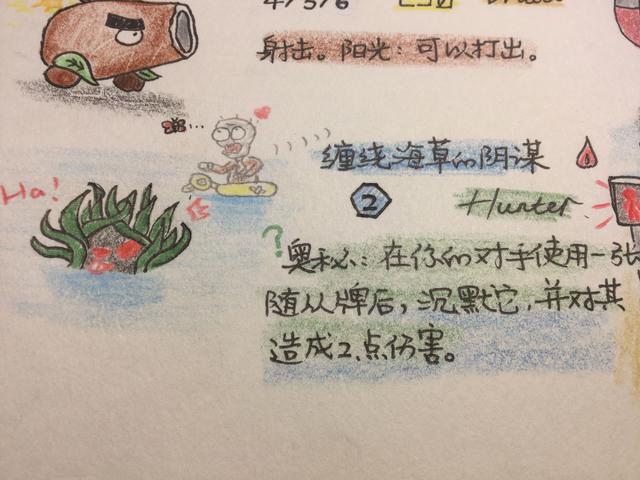 4/5/6
射击。阳光：可以打出。
缠绕海草的阴谋
Ha!
2
Hunter
?
奥秘：在你的对手使用一张
随从牌后，沉默它，并对其
造成2点伤害。